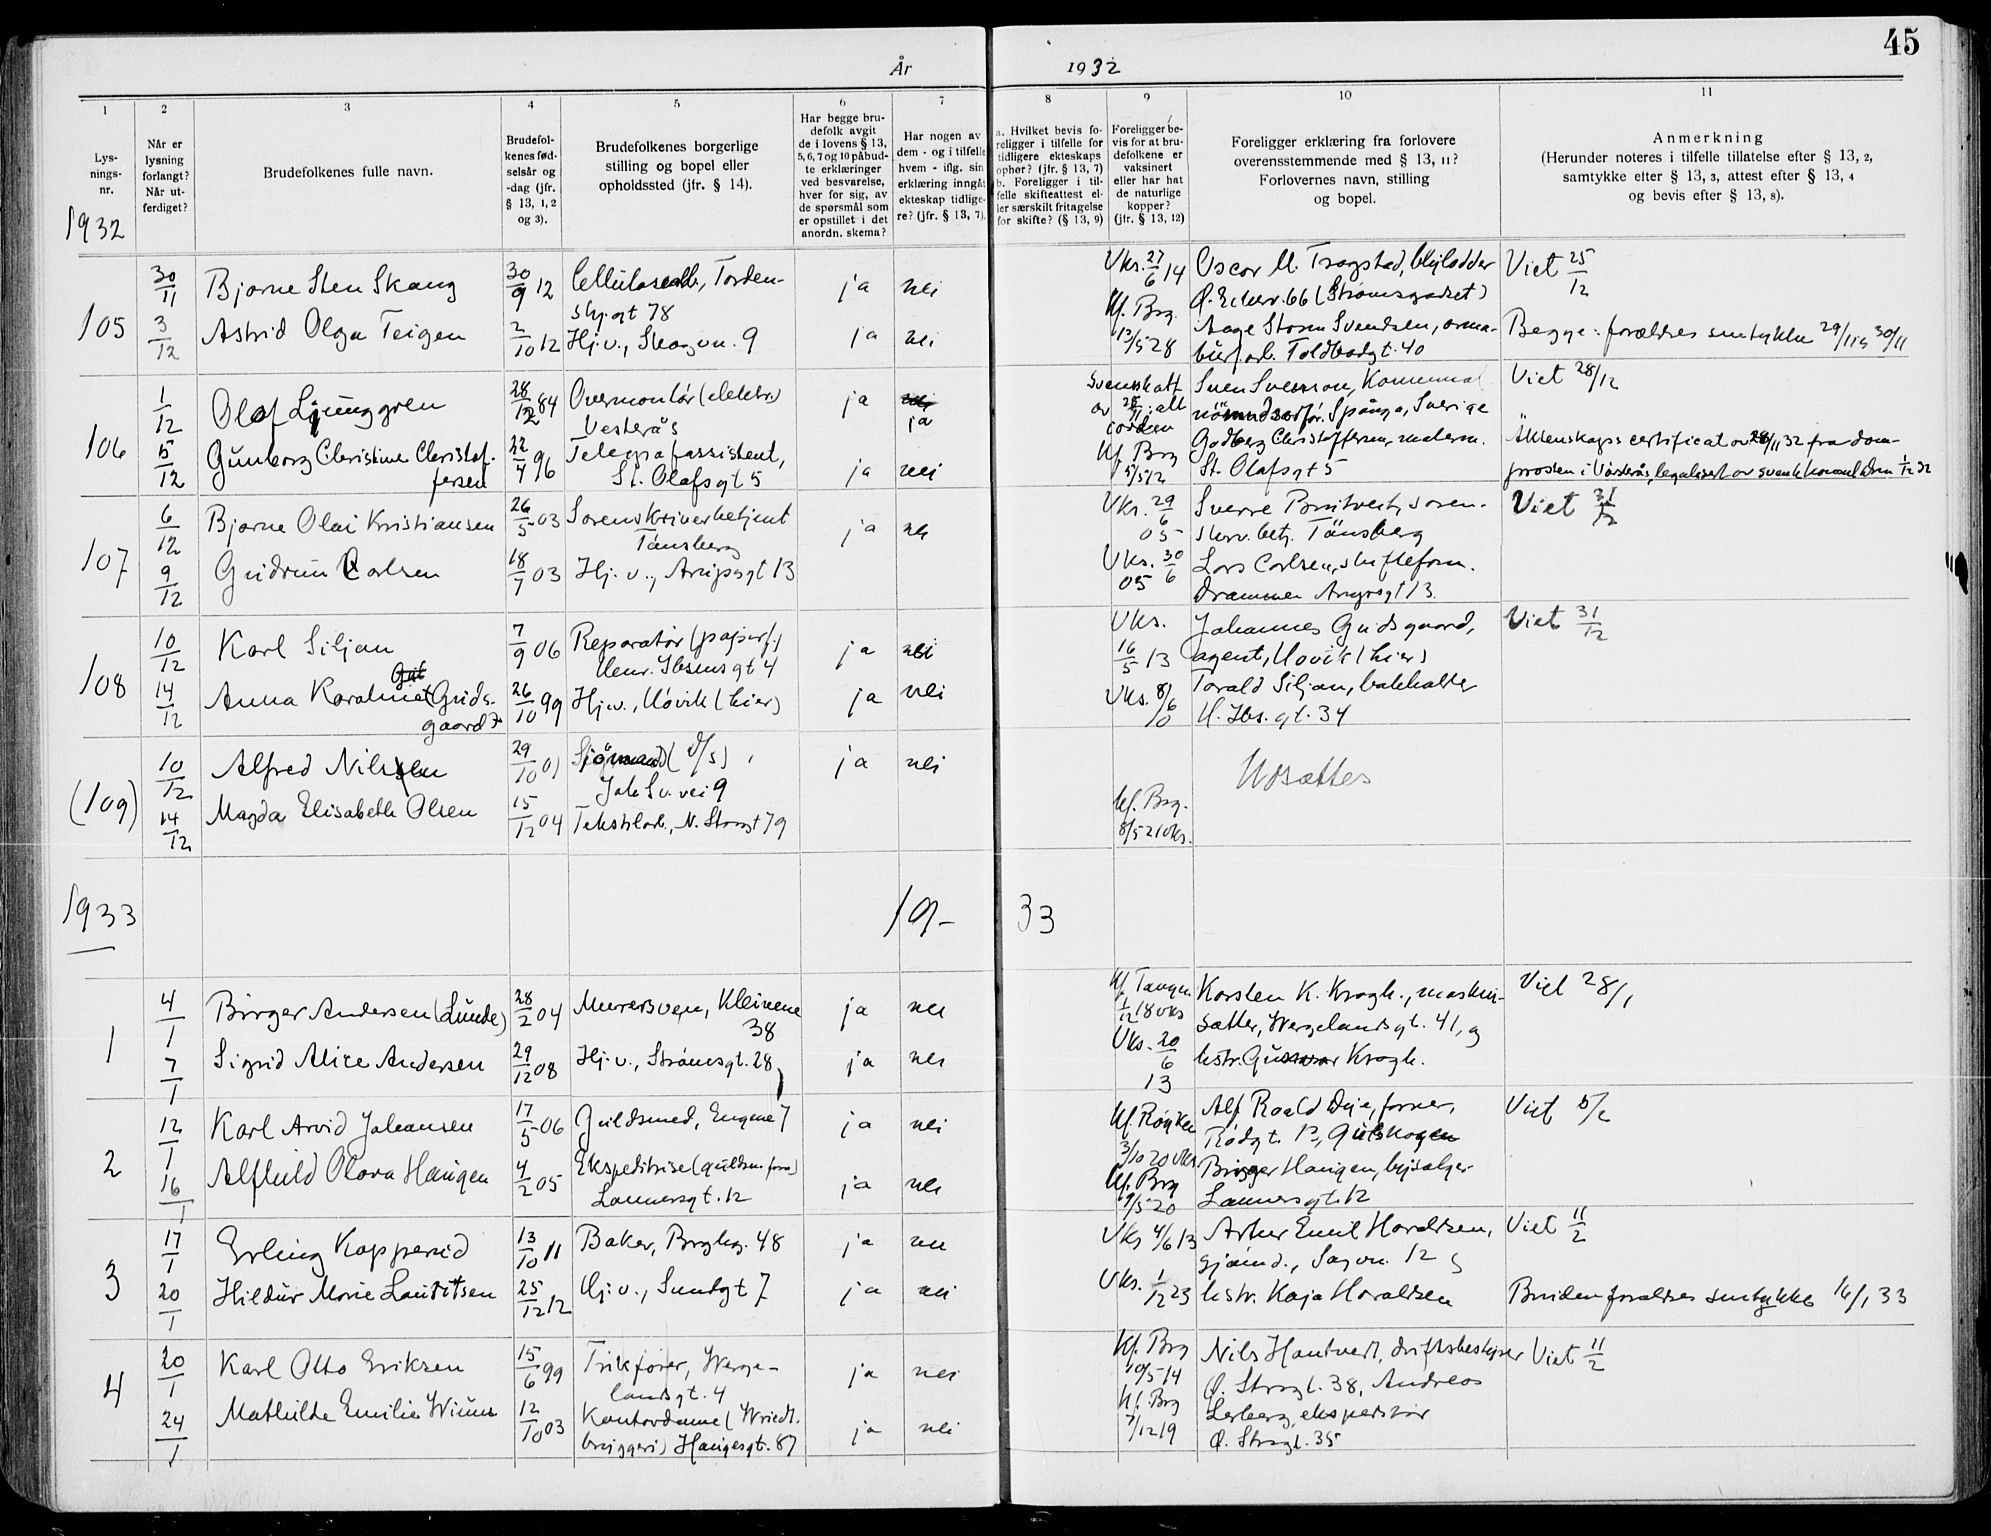 45
År 1932
1
2
3
4
5
6
7
8
9
10
11
Lys-
nings-
nr.
Når er
lysning
forlangt?
Når ut-
ferdiget?
Brudefolkenes fulle navn.
Brudefol-
kenes fød-
selsår og
-dag (jfr.
§ 13, 1, 2
og 3).
Brudefolkenes borgerlige
stilling og bopel eller
opholdssted (jfr. § 14).
Har begge bru-
defolk avgit
de i lovens § 13,
5, 6, 7 og 10 påbud-
te erklæringer
ved besvarelse,
hver for sig, av
de spørsmål som
er opstillet i det
anordn. skema?
Har nogen av
dem - og i tilfelle
hvem - iflg. sin
erklæring inngåt
ekteskap tidlige-
re? (jfr. § 13, 7).
a. Hvilket bevis fo-
religger i tilfelle for
tidligere ekteskaps
ophør? (jfr. § 13, 7)
b. Foreligger i til-
felle skifteattest el-
ler særskilt fritagelse
for skifte? (§ 13, 9)
Foreligger be-
vis for at bru-
defolkene er
vaksinert
eller har hat
de naturlige
kopper?
(jfr. § 13, 12)
Foreligger erklæring fra forlovere
overensstemmende med § 13, 11?
Forlovernes navn, stilling
og bopel.
Anmerkning
(Herunder noteres i tilfelle tillatelse efter § 13, 2,
samtykke efter § 13, 3, attest efter § 13, 4
og bevis efter § 13, 8).
1932
105
30/11 Bjarne Sten Skaug 30/9 12 Torden-
skj.gt 78 ja nei Vks. 27/6 14 Oscar M. Tragstad, Viet 25/12
3/12 Astrid Olga Teigen 2/10 12 Hj.v., Skogv. 9 ja nei Kf. Brg. 13/5 28 Aage Storm Svendsen,
Toldbodgt. 40 Begge forældres samtykke 29/11 30/11
106
1/12 Olof Ljunggren 28/12 84 Overmontör (elektr.)
Vesterås ja nei ja Sven Svensson, Spånga, Sverige Viet 28/12
5/12 Gunborg Christine Christof-
fersen 22/4 96 Telegrafassistent,
St. Olafsgt 5 ja nei Kf. Brg 5/5 12 Godberg Christoffersen,
St. Olafsgt 5 Äktenskapscertificat av 28/11 32 fra dom-
prosten i Västerås, legaliset av svensk konsul Drm 1/12 32
107
6/12 Bjarne Olai Kristiansen 26/5 03 Sorenskriverbetjent
Tønsberg ja nei Vks. 29/6 05 Sverre soren-
skrv.betj. Tønsberg Viet 31/12
9/12 Gudrun Carlsen 18/7 03 Hj. v., 13 Vks. 30/6 05 Lars Carlsen, skifteform.
Drammen 13.
108
10/12 Karl Siljan 7/9 06 Reparatør (papirf.)
Henr. Ibsensgt 4 ja nei Vks. 16/5 13 Johannes Gudsgaard,
agent, Hovik (hier) Viet 31/12
14/12 Anna Karoline Guds-
gaard 26/10 99 Hj.v., Hövik (hier) ja nei Vks. 8/6 Torald Siljan,
H. Ibs. gt. 34
(109)
10/12 Alfred Nilsen 29/10 01 Sjömand (d/s)
Jak Sv. vei 9 ja nei Utsættes
14/12 Magda Elisabeth Olsen 15/12 04 Tekstilarb., N. Storgt 79 Kf. Brg. 8/5 21 vks.
1933
19- 33
1
4/1 Birger Andersen (Lunde) 28/2 04 Murersven, Kleivene
38 ja nei Kf. Tangen 1/12 18 vks Karsten K. Krogh., maskin-
sætter, Wergelandsgt. 41, og Viet 28/1
7/1 Sigrid Alice Andersen 29/12 08 Hj. v., Strömsgt. 28 ja nei Vks. 20/6 13 hstr. Gunvor Krogh.
2
12/1 Karl Arvid Johansen 17/5 06 Guldsmed, Engene 7 ja nei Kf. Røyken 3/10 20 vks Alf Roald Øye, former,
Rødgt. 13, Gulskogen Viet 5/2
16/1 Alfhild Olava Haugen 4/2 05 Ekspeditrise (guldsm.forr.)
Lammersgt. 12 ja nei Kf. Brg 9/5 20 Birger Haugen,
Lammersgt. 12
3
17/1 Erling Kopperud 13/10 11 Baker, Brghg. 48 ja nei Vks 4/6 13 Arthur Emil Haraldsen,
sjömd., Sagv. 12 Viet 11/2
20/1 Hildur Marie Lauritsen 25/12 12 Hj. v., Sundgt 7 ja nei Vks. 1/12 23 hstr. Kaja Haraldsen Bruden forældres samtykke 16/1 33
4
20/1 Karl Otto Eriksen 15/6 99 Trikfører, Werge-
landsgt. 4 ja nei Kf. Brg 10/5 14 Nils Hantvedt, driftsbestyrer
Ø. Storgt. 38, Andreas Viet 11/2
24/1 Mathilde Emilie Wium 12/10 03 Kontordame (Wriedt.
bryggeri) Haugesgt. 87 ja nei Kf. Brg 7/12 19 Lerberg, ekspeditør
Ø. Storgt. 35